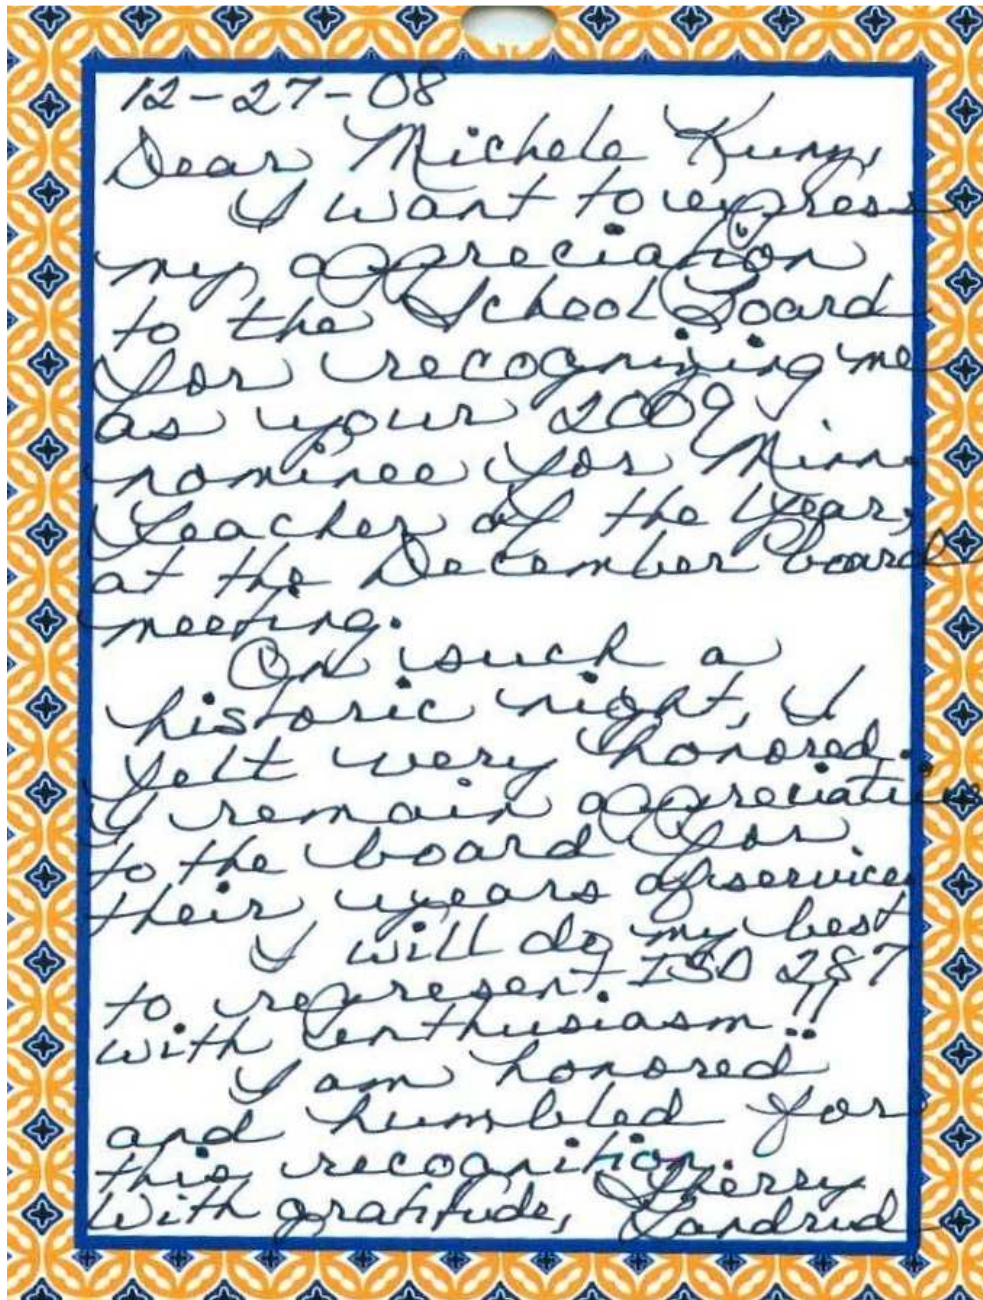 12-27-08
Dear Michele Kuny,
I want to express
my appreciation
to the School Board
for recognizing me
as your 2009
nominee for Minn
Teacher of the Year,
at the December board
meeting.
On such a
historic night, I
felt very honored.
I remain appreciative
to the board for
their years of service.
I will do my best
to represent ISD 287
with enthusiasm!!
I am honored
and humbled for
this recognition.
With gratitude, Sherry
Landrud